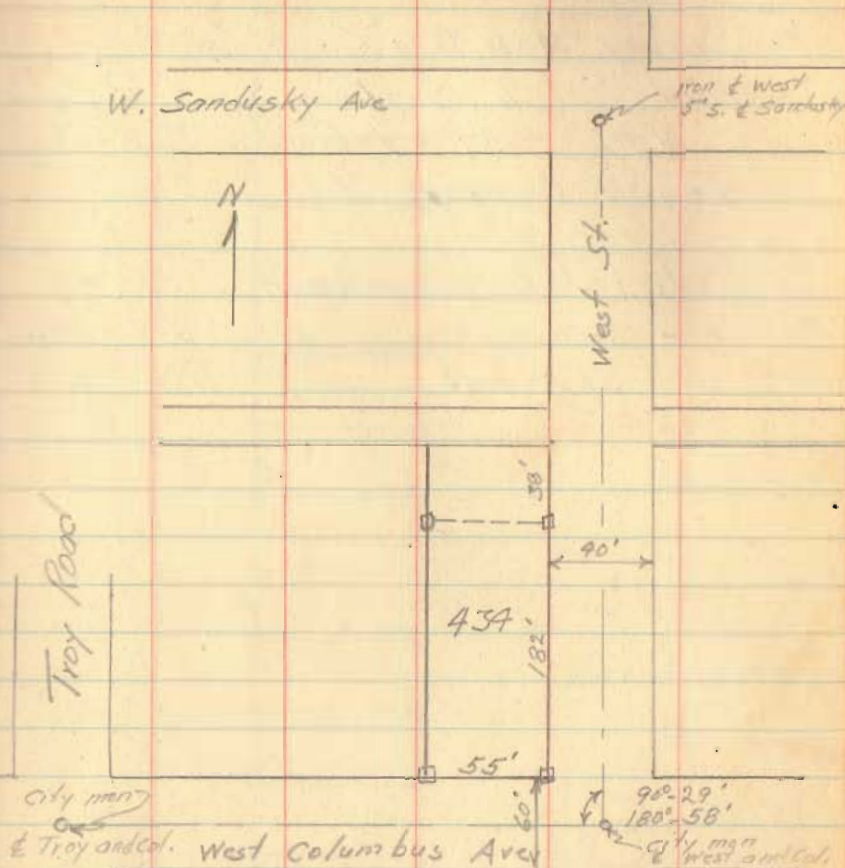 W. Sandusky Ave
Iron ℄ West
5' S. ℄ Sandusky
N
West St.
38'
40'
Troy Road
434
182'
55'
60'
90°-29'
180°-58'
City mon
℄ Troy and Col.
West Columbus Ave
City mon
℄ West and Col.